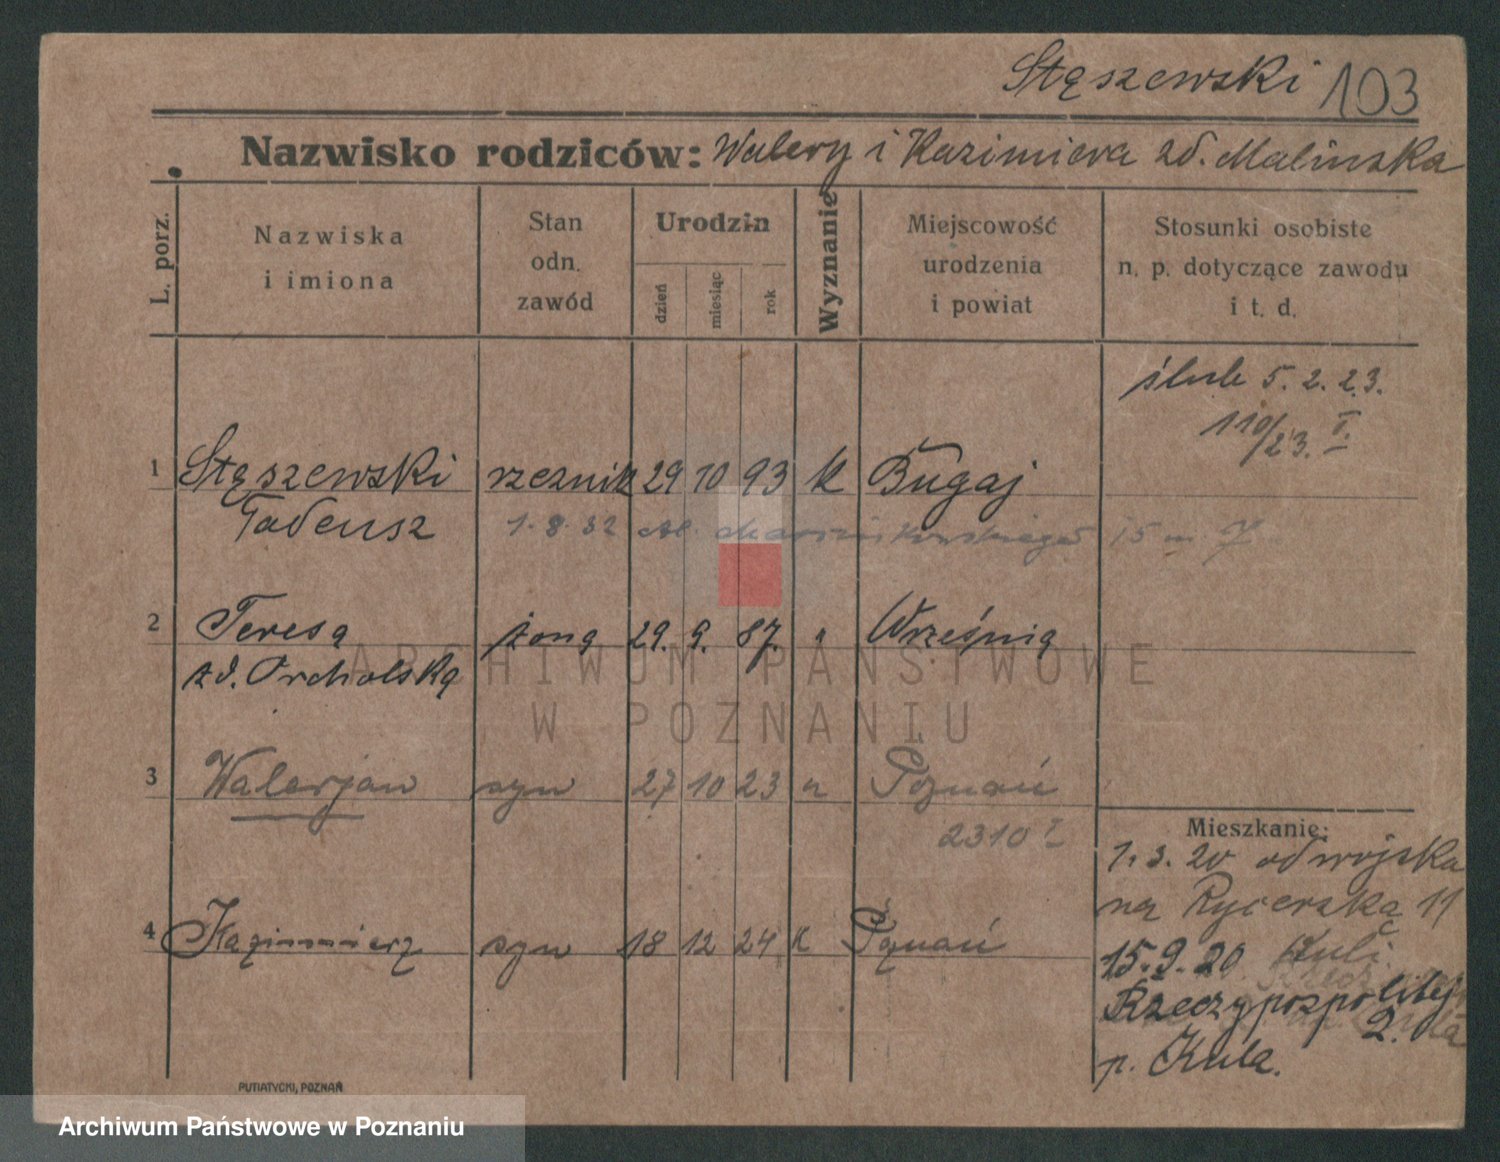 Stęszewski 103
Nazwisko rodziców: Walery i Kazimiera zd. Malińska
L. porz.
Nazwiska
i imiona
Stan
odn.
zawód
Urodzin
dzień
miesiąc
rok
Wyznanie
Miejscowość
urodzenia
i powiat
Stosunki osobiste
n. p. dotyczące zawodu
i t. d.
ślub 5. 2. 23.
110/23. I.
1 Stęszewski rzeźnik 29 10 93 k Bugaj
Tadeusz 1. 8. 32 Al. Marcinkowskiego 15 m 7
2 Teresa żona 29. 9. 87. " Września
zd. Orcholska
ARCHIWUM PAŃSTWOWE
W POZNANIU
3 Walerjan syn 27 10 23 " Poznań
2310 I
4 Kazimierz syn 18 12 24 k Poznań
Mieszkanie:
1. 3. 20 od wojska
na Rycerska 11
15. 9. 20
Rzeczypospolitej
2.
p. Kula.
PUTIATYCKI, POZNAŃ
Archiwum Państwowe w Poznaniu